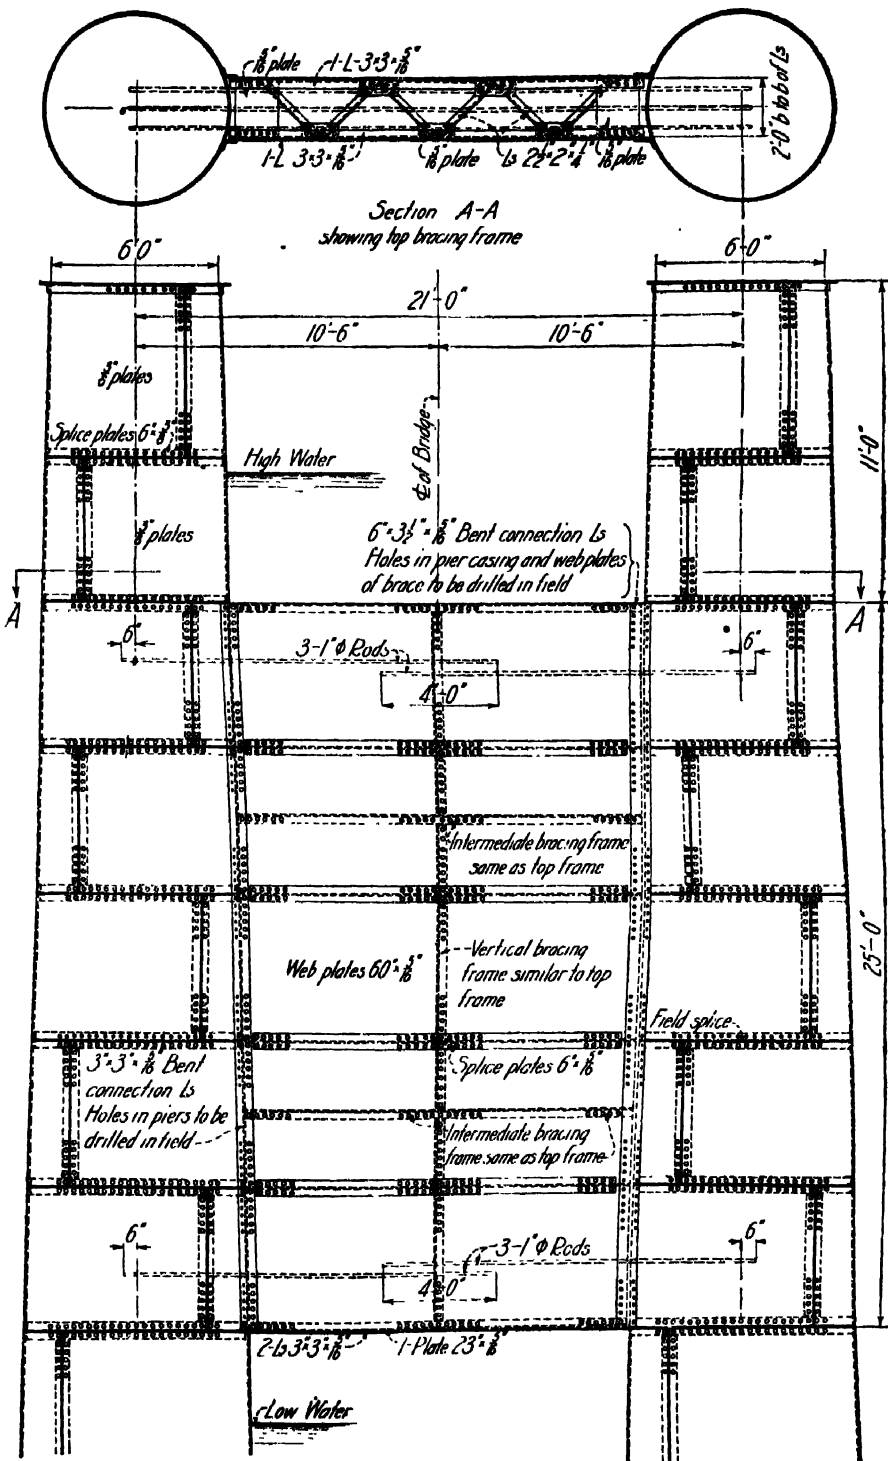 5/16" plate
1-L-3"×3"×5/16"
1-L 3"×3"×5/16"
5/16" plate
Ls 2½"×2"×¼"
5/16" plate
2'-0" b to b of Ls
Section A-A
showing top bracing frame
6'0"
6'-0"
21'-0"
10'-6"
10'-6"
3/8" plates
Splice plates 6"×3/8"
High Water
℄ of Bridge
11'-0"
3/8" plates
6"×3½"×5/16" Bent connection Ls
Holes in pier casing and web plates
of brace to be drilled in field
A
A
6"
3-1"Φ Rods
6"
4'-0"
Intermediate bracing frame
same as top frame
25'-0"
Web plates 60"×5/16"
Vertical bracing
frame similar to top
frame
Field splice
3"×3"×5/16" Bent
connection Ls
Holes in piers to be
drilled in field
Splice plates 6"×5/16"
Intermediate bracing
frame same as top frame
6"
3-1"Φ Rods
6"
4'-0"
2-Ls 3"×3"×5/16"
1-Plate 23"×5/16"
Low Water